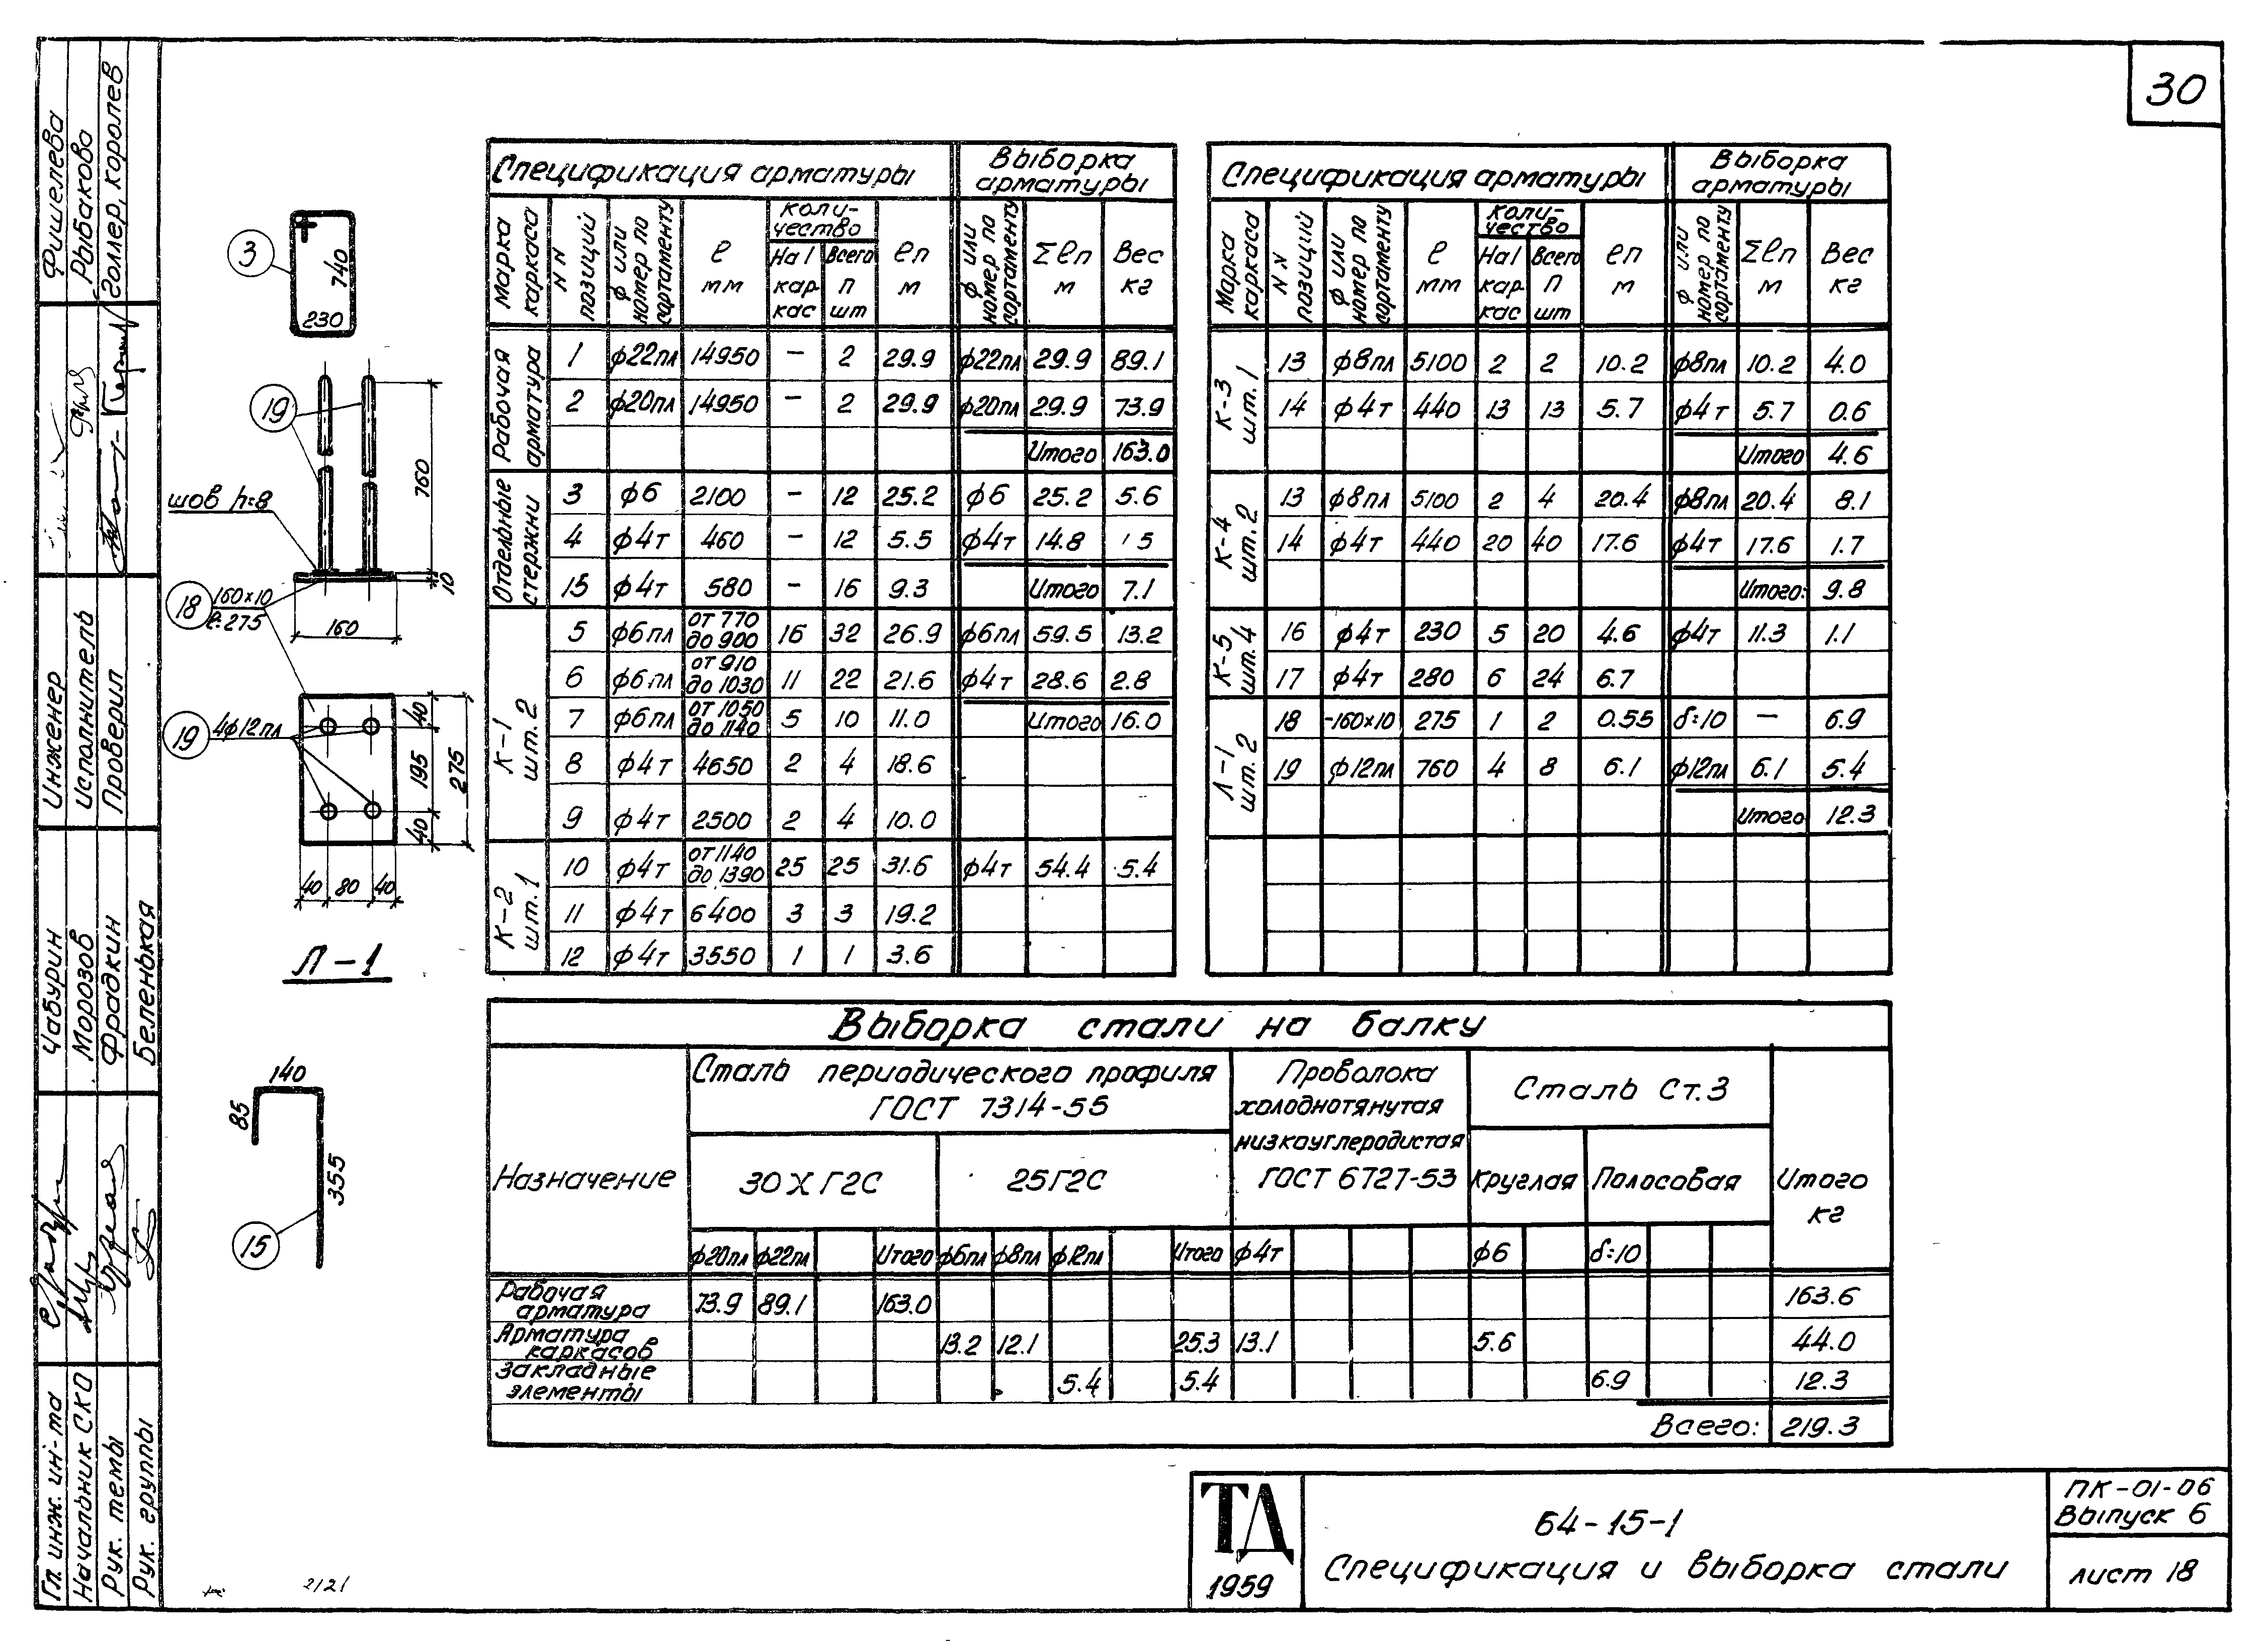 30
Фишелева
Рыбакова
Голлер, Королев
Инженер
Исполнитель
Проверил
Чабурин
Морозов
Фрадкин
Беленькая
Гл. инж. ин-та
Начальник СКО
Рук. темы
Рук. группы
3
740
230
19
760
шов h=8
10
18 160×10
ℓ=275
160
19 4ф12пл
40
195
275
40
40 80 40
Л-1
140
85
355
15
2121
Спецификация арматуры Выборка арматуры
Марка каркаса NN позиций ф или номер по сортаменту ℓ мм Количество На 1 каркас Всего п шт ℓп м ф или номер по сортаменту Σℓп м Вес кг
Рабочая арматура
1 ф22пл 14950 – 2 29.9 ф22пл 29.9 89.1
2 ф20пл 14950 – 2 29.9 ф20пл 29.9 73.9
Итого 163.0
Отдельные стержни
3 ф6 2100 – 12 25.2 ф6 25.2 5.6
4 ф4т 460 – 12 5.5 ф4т 14.8 5
15 ф4т 580 – 16 9.3 Итого 7.1
К-1 шт. 2
5 ф6пл от 770 до 900 16 32 26.9 ф6пл 59.5 13.2
6 ф6пл от 910 до 1030 11 22 21.6 ф4т 28.6 2.8
7 ф6пл от 1050 до 1140 5 10 11.0 Итого 16.0
8 ф4т 4650 2 4 18.6
9 ф4т 2500 2 4 10.0
К-2 шт. 1
10 ф4т от 1140 до 1390 25 25 31.6 ф4т 54.4 5.4
11 ф4т 6400 3 3 19.2
12 ф4т 3550 1 1 3.6
Спецификация арматуры Выборка арматуры
Марка каркаса NN позиций ф или номер по сортаменту ℓ мм Количество На 1 каркас Всего п шт ℓп м ф или номер по сортаменту Σℓп м Вес кг
К-3 шт. 1
13 ф8пл 5100 2 2 10.2 ф8пл 10.2 4.0
14 ф4т 440 13 13 5.7 ф4т 5.7 0.6
Итого 4.6
К-4 шт. 2
13 ф8пл 5100 2 4 20.4 ф8пл 20.4 8.1
14 ф4т 440 20 40 17.6 ф4т 17.6 1.7
Итого: 9.8
К-5 шт. 4
16 ф4т 230 5 20 4.6 ф4т 11.3 1.1
17 ф4т 280 6 24 6.7
Л-1 шт. 2
18 -160×10 275 1 2 0.55 δ=10 – 6.9
19 ф12пл 760 4 8 6.1 ф12пл 6.1 5.4
Итого 12.3
Выборка стали на балку
Назначение
Сталь периодического профиля
ГОСТ 7314-55
30ХГ2С 25Г2С
Проволока
холоднотянутая
низкоуглеродистая
ГОСТ 6727-53
Сталь Ст.3
Круглая Полосовая
Итого
кг
ф20пл ф22пл Итого ф6пл ф8пл ф12пл Итого ф4т ф6 δ=10
Рабочая арматура 73.9 89.1 163.0 163.6
Арматура каркасов 13.2 12.1 25.3 13.1 5.6 44.0
Закладные элементы 5.4 5.4 6.9 12.3
Всего: 219.3
ТД
1959
Б4-15-1
Спецификация и выборка стали
ПК-01-06
Выпуск 6
лист 18